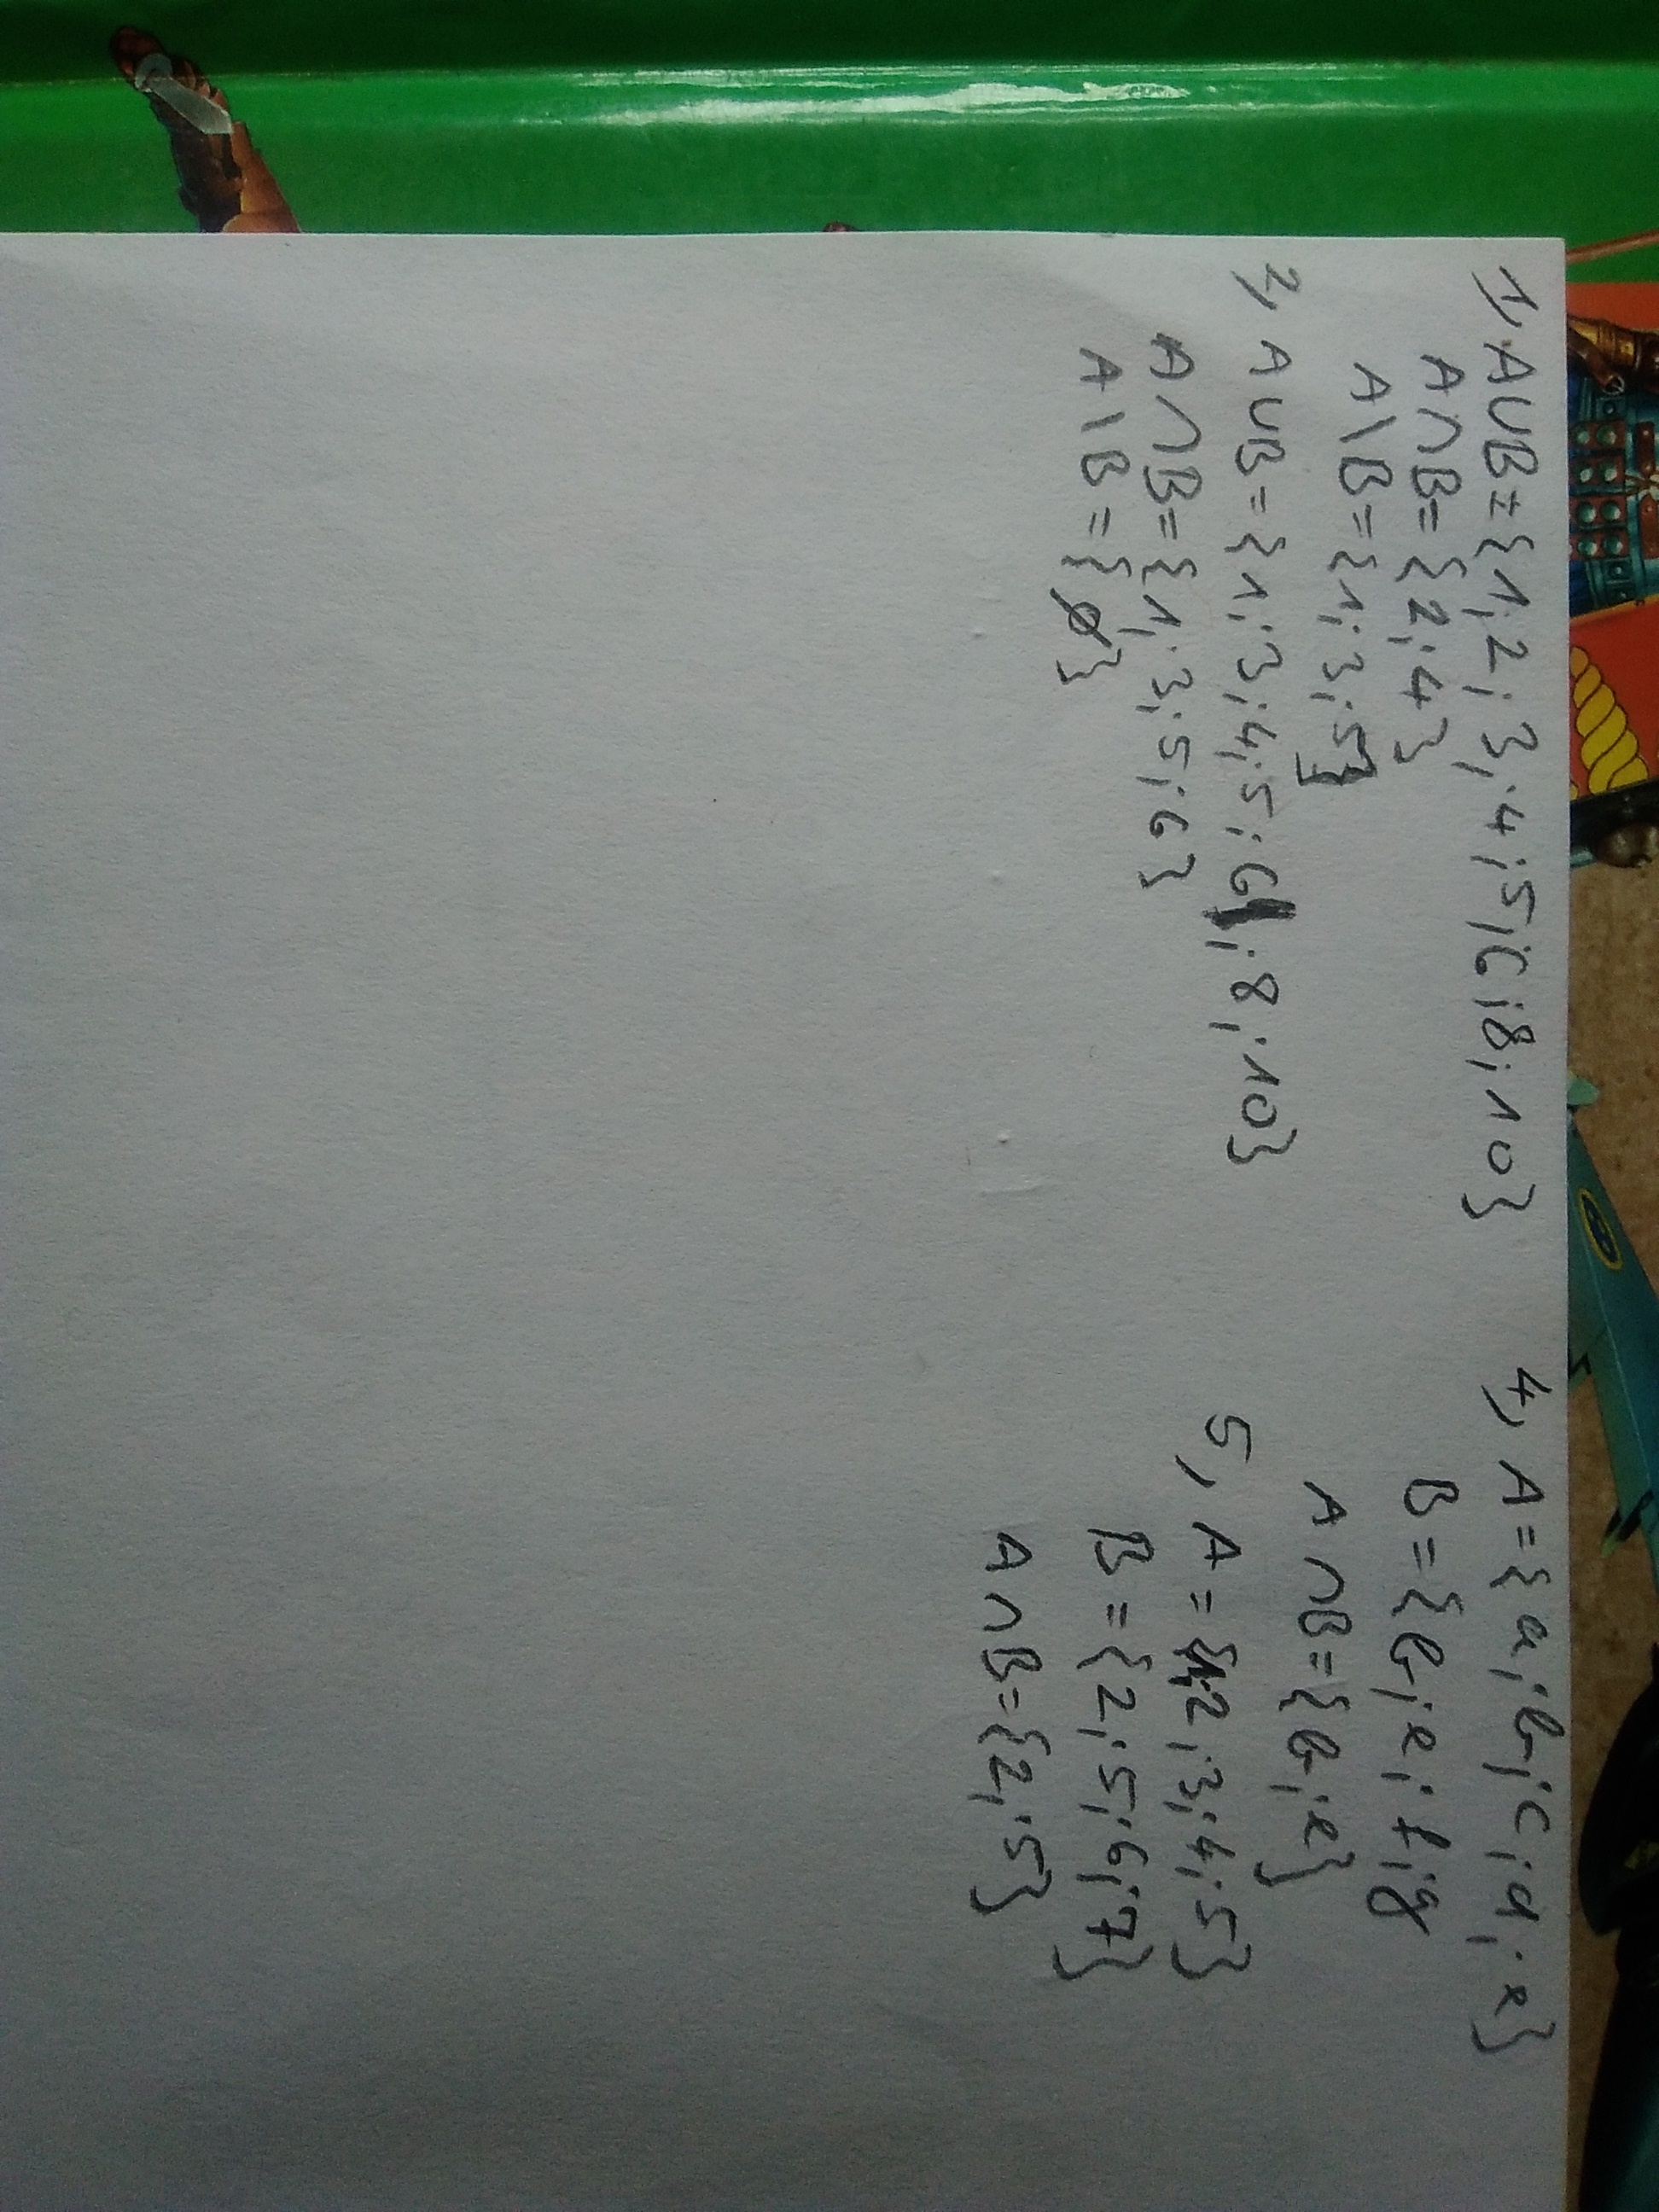 1, A∪B={1;2;3;4;5;6;8;10}
A∩B={2;4}
A\B={1;3;5}
2, A∪B={1;3;4;5;6;8;10}
A∩B={1;3;5;6}
A\B={∅}
4, A={a;b;c;d;e}
B={b;e;f;g
A∩B={b;e}
5, A={1;2;3;4;5}
B={2;5;6;7}
A∩B={2;5}